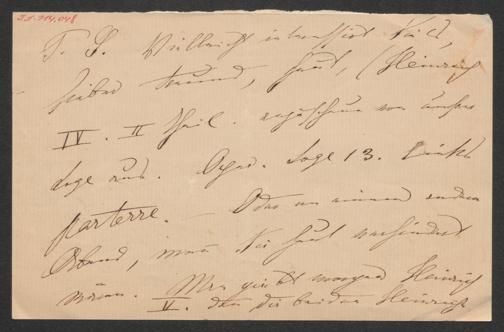 I.N. 214.048
P. S. Vielleicht interessirt Dich,
lieber Freund, heut, (Heinrich
IV. II Theil. anzuschauen von unserer
Loge aus. Loge 13. Links
parterre. — Oder an einem andern
Abend, wenn Sie heut verhindert
wären. Man giebt morgen Heinrich
V. den die beiden Heinrich